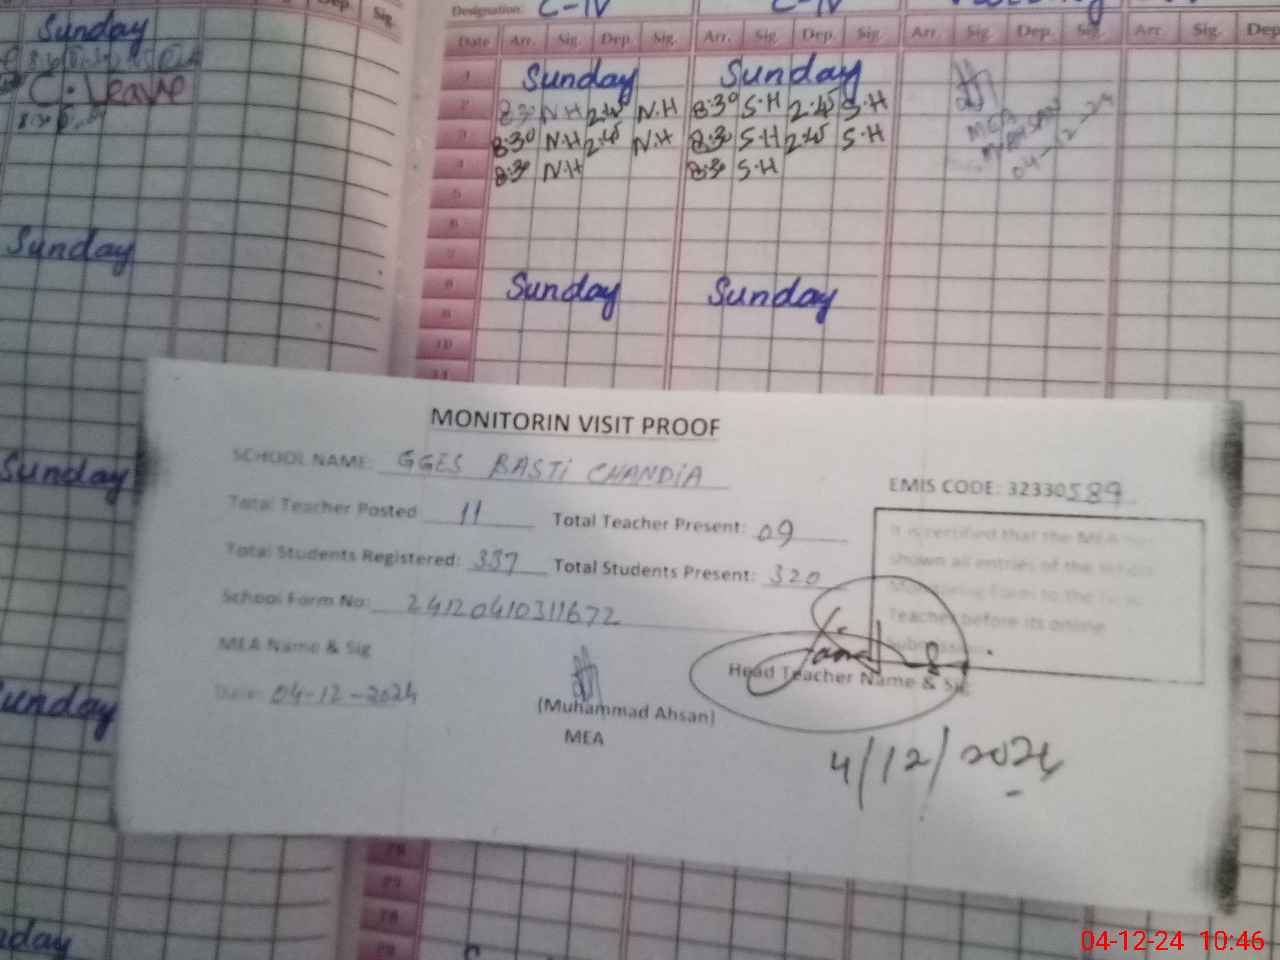 Dep. Sig.
Sunday
C. Leave
Sunday
Sunday
Sunday
Designation: C-IV C-IV
Date Arr. Sig. Dep. Sig. Arr. Sig. Dep. Sig. Arr. Sig. Dep. Sig. Arr. Sig. Dep
1 Sunday Sunday
2 8:30 N.H 2:45 N.H 8:30 S.H 2:45 S.H
3 8:30 N.H 2:45 N.H 8:30 S.H 2:45 S.H
4 8:30 N.H 8:30 S.H
MEA
04-12-24
5
6
7
8 Sunday Sunday
9
10
11
MONITORIN VISIT PROOF
SCHOOL NAME: GGES BASTI CHANDIA
EMIS CODE: 32330589
Total Teacher Posted 11 Total Teacher Present: 09
Total Students Registered: 337 Total Students Present: 320
School Form No: 24120410311672
It is certified that the MEA has
shown all entries of the
Monitoring Form to the
Teacher before its online
submission.
MEA Name & Sig
Head Teacher Name & Sig
Date: 04-12-2024
(Muhammad Ahsan)
MEA
4/12/2024
04-12-24 10:46